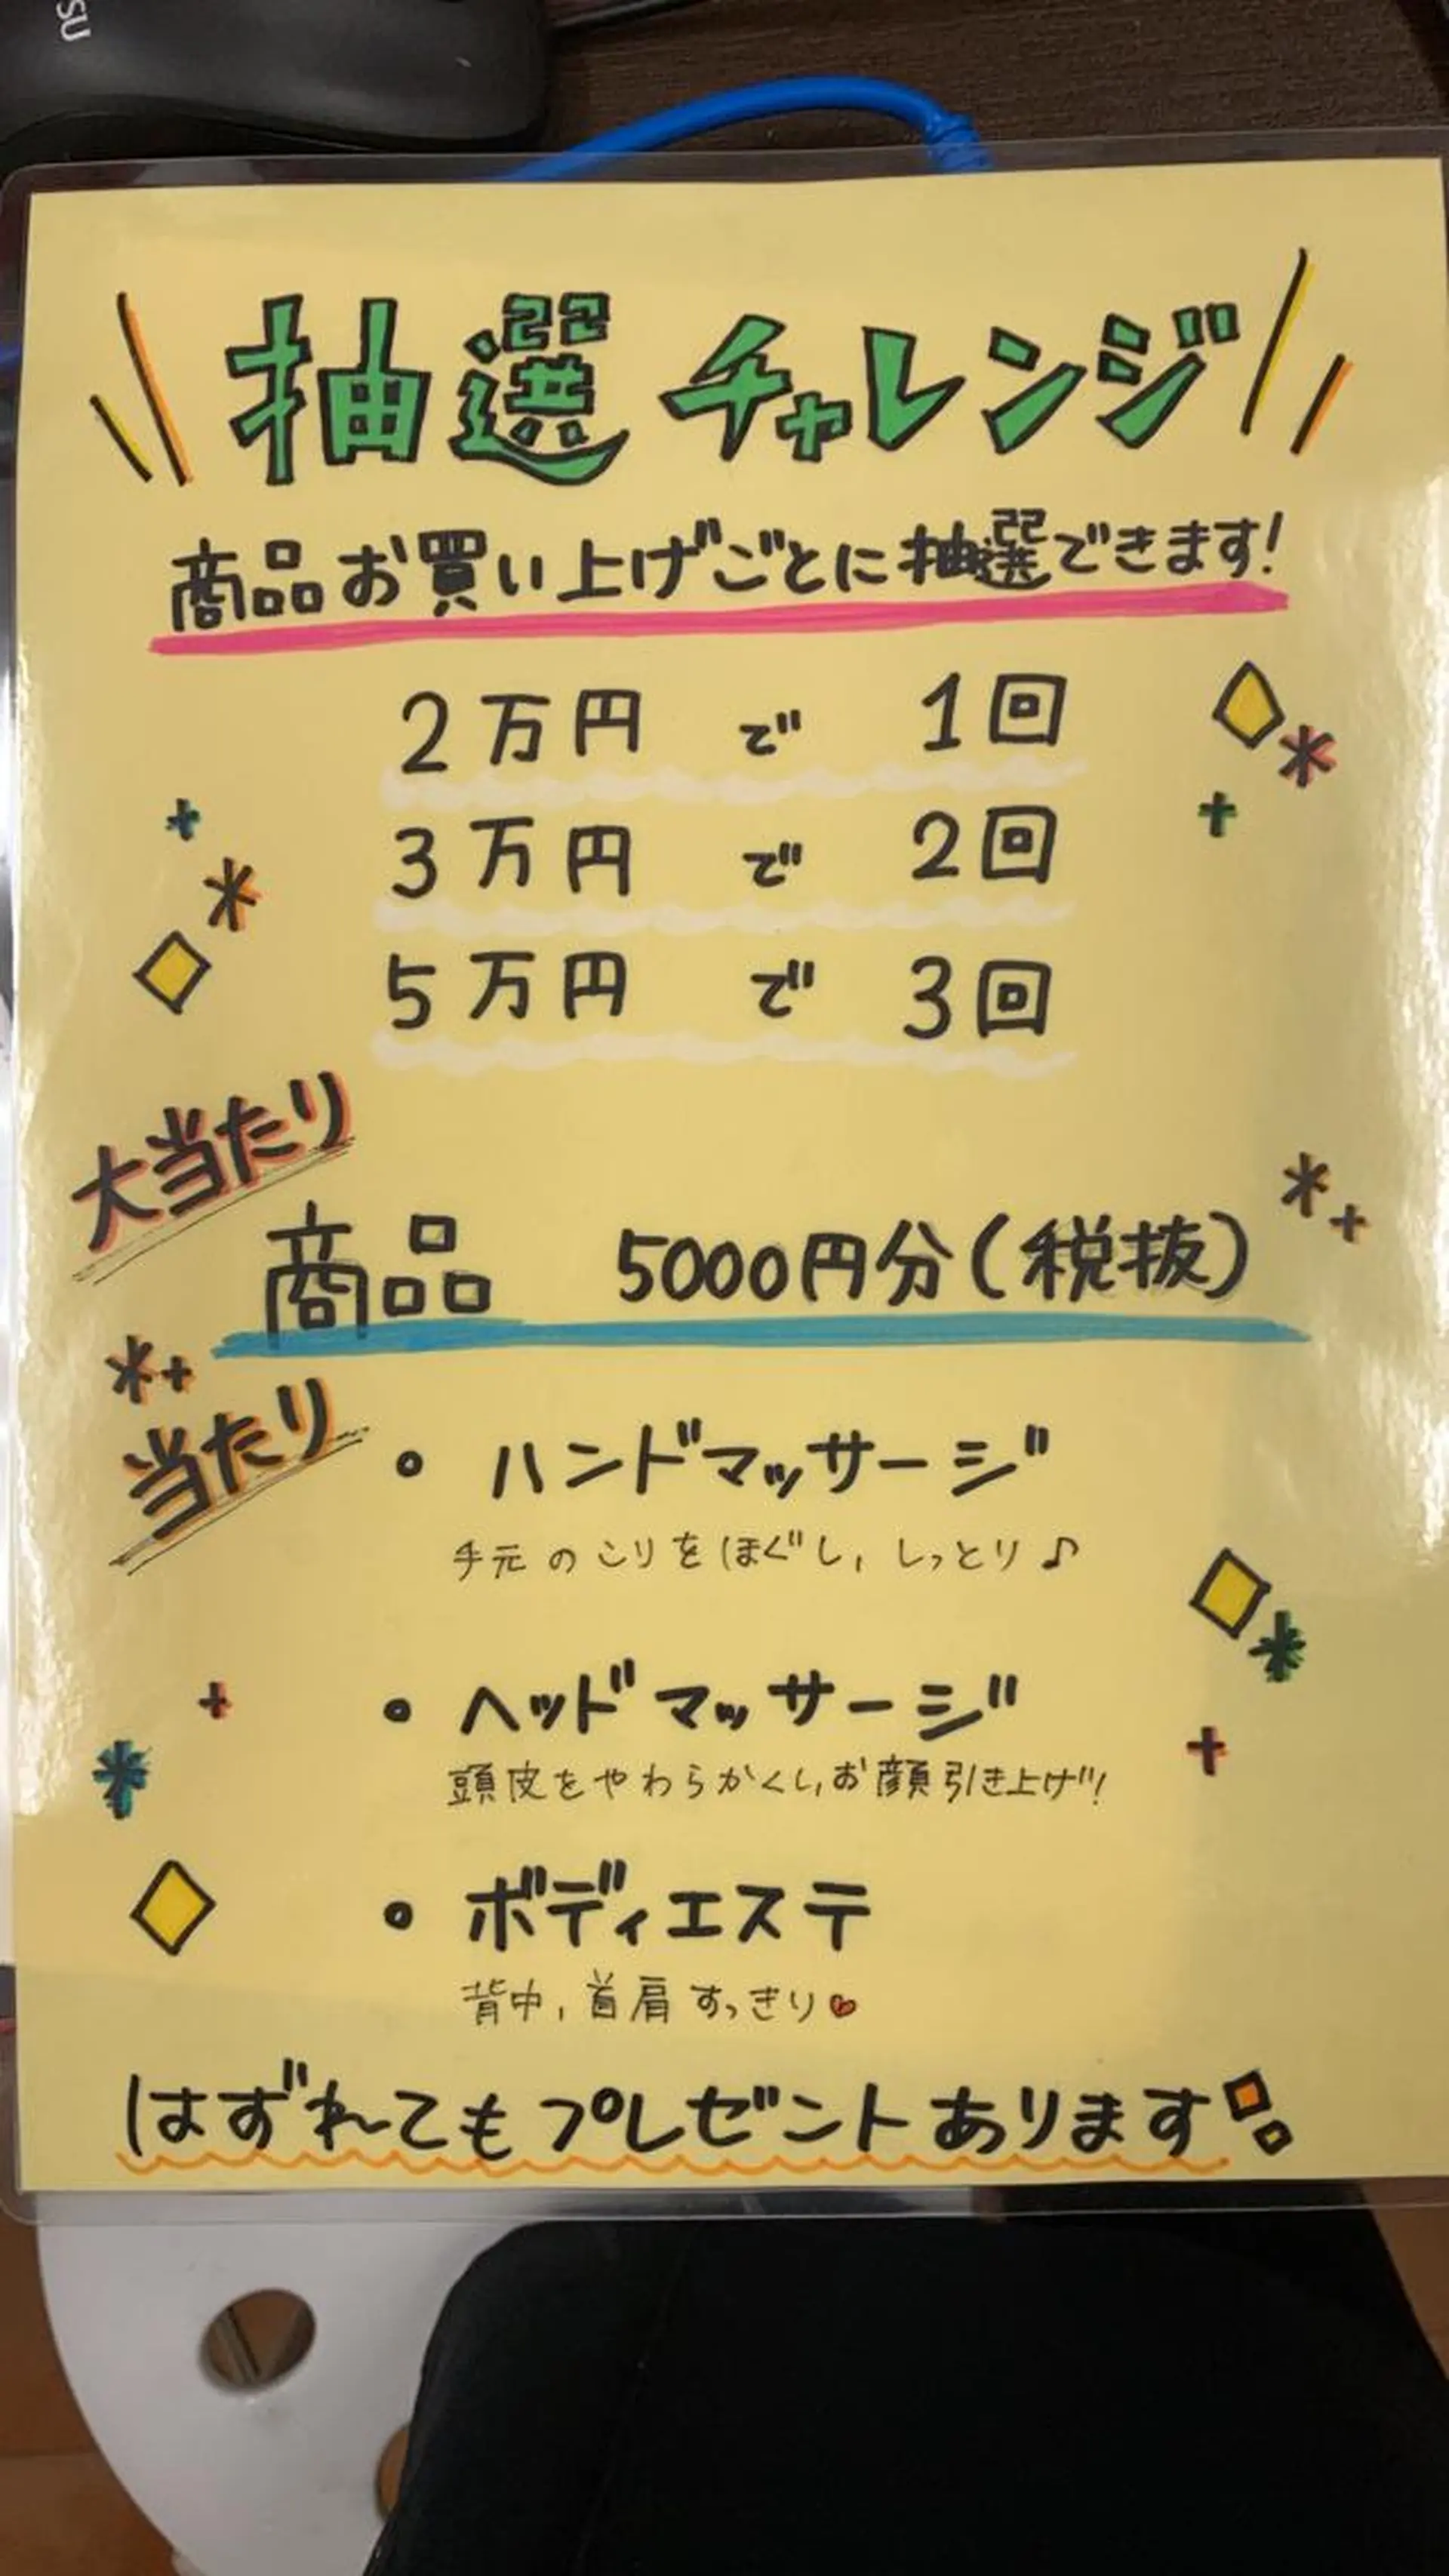 SU
抽選チャレンジ
商品お買い上げごとに抽選できます!
2万円 で 1回
3万円 で 2回
5万円 で 3回
大当たり
商品 5000円分(税抜)
当たり
• ハンドマッサージ
手元のこりをほぐし, しっとり♪
• ヘッドマッサージ
頭皮をやわらかくし,お顔引き上げ!
• ボディエステ
背中, 首肩すっきり♥
はずれてもプレゼントあります!